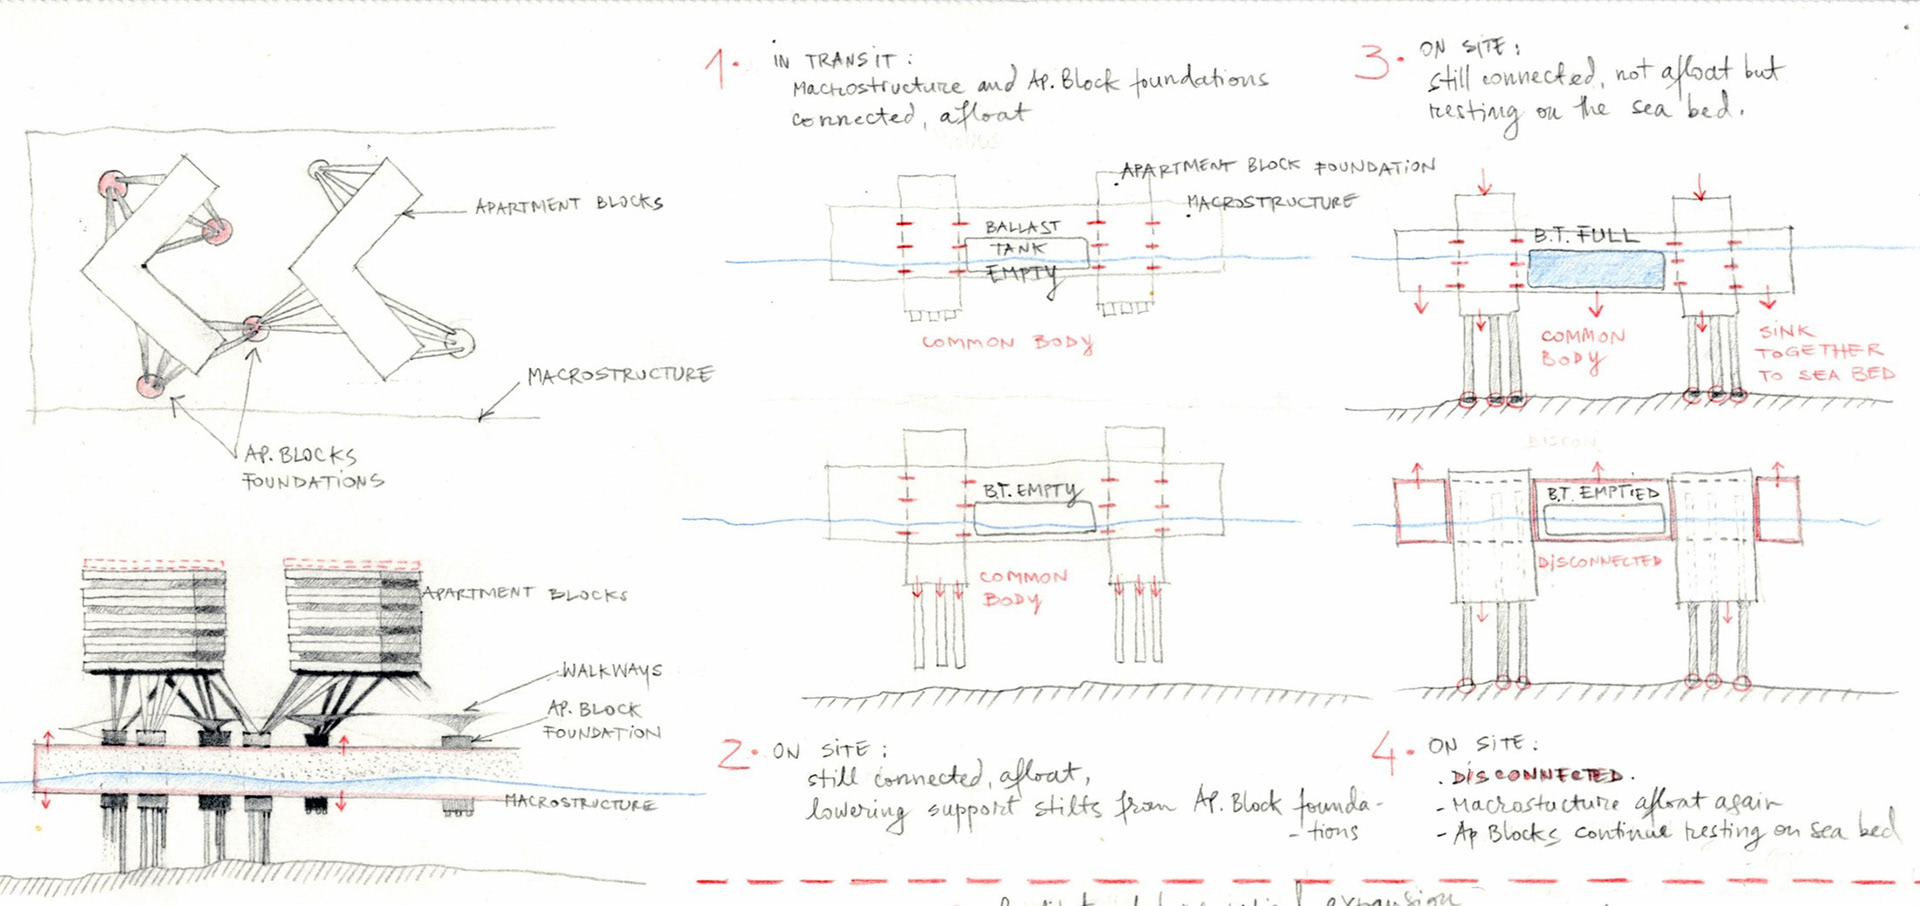 APARTMENT BLOCKS
MACROSTRUCTURE
AP. BLOCKS
FOUNDATIONS
APARTMENT BLOCKS
WALKWAYS
AP. BLOCK
FOUNDATION
MACROSTRUCTURE
1. IN TRANSIT:
Macrostructure and Ap. Block foundations
connected, afloat
APARTMENT BLOCK FOUNDATION
MACROSTRUCTURE
BALLAST
TANK
EMPTY
COMMON BODY
B.T. EMPTY
COMMON
BODY
2. ON SITE:
still connected, afloat,
lowering support stilts from Ap. Block founda-
-tions
3. ON SITE:
still connected, not afloat but
resting on the sea bed.
B.T. FULL
COMMON
BODY
SINK
TOGETHER
TO SEA BED
DISCON
B.T. EMPTIED
DISCONNECTED
4. ON SITE:
. DISCONNECTED.
- Macrostucture afloat again
- Ap Blocks continue resting on sea bed
expansion